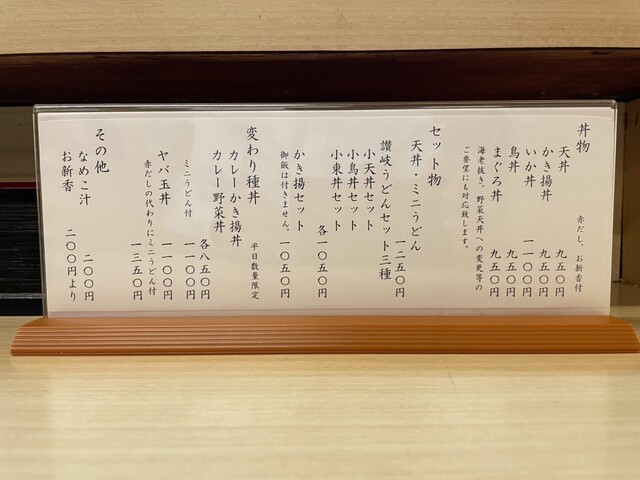 丼物
赤だし、お新香付
天丼 九五〇円
かき揚丼 九五〇円
いか丼 一一〇〇円
鳥丼 九五〇円
まぐろ丼 九五〇円
海老抜き、野菜天丼への変更等の
ご要望にも対応致します。
セット物
天丼・ミニうどん
一二五〇円
讃岐うどんセット三種
小天丼セット
小鳥丼セット
小東丼セット
各一〇五〇円
かき揚セット
御飯は付きません。 一〇五〇円
変わり種丼
平日数量限定
カレーかき揚丼
カレー野菜丼
各八五〇円
ミニうどん付 一一〇〇円
ヤバ玉丼 一一〇〇円
赤だしの代わりにミニうどん付
一三五〇円
その他
なめこ汁 二〇〇円
お新香 二〇〇円より